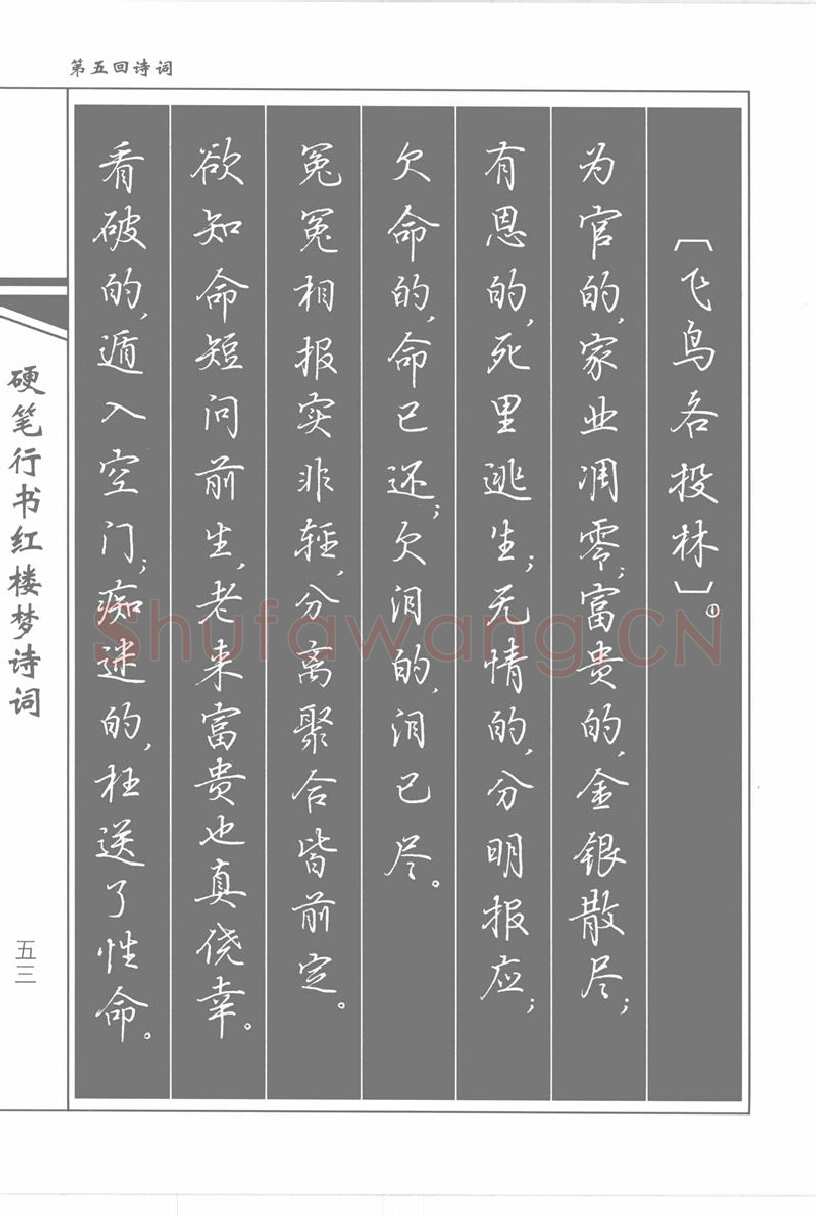 第五回诗词
〔飞鸟各投林〕①
为官的，家业凋零；富贵的，金银散尽；
有恩的，死里逃生；无情的，分明报应；
欠命的，命已还；欠泪的，泪已尽。
冤冤相报实非轻，分离聚合皆前定。
欲知命短问前生，老来富贵也真侥幸。
看破的，遁入空门；痴迷的，枉送了性命。
硬笔行书红楼梦诗词
五三
Shufawang.CN